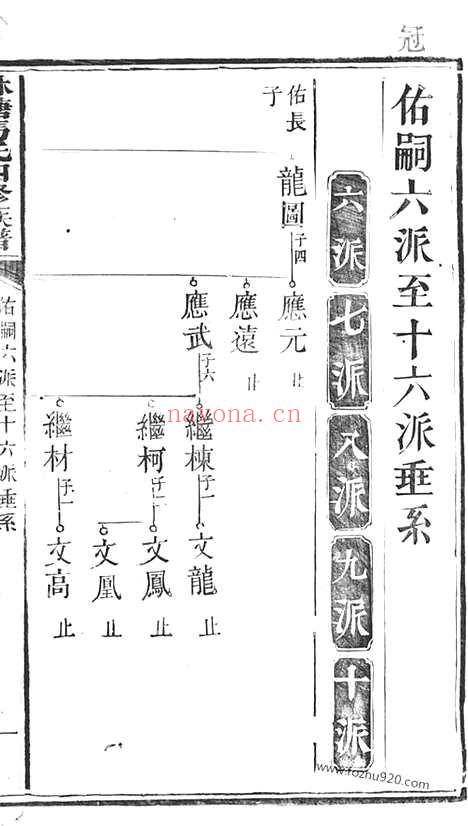 冠
佑嗣六派至十六派垂系
六派
七派
八派
九派
十派
佑長子
龍圖
子四
應元
止
應遠
止
應武
子六
繼棟
子一
文龍
止
繼柯
子二
文鳳
止
文凰
止
繼材
子一
文高
止
四修族譜
佑嗣六派至十六派垂系
一
nayona.cn
www.fozhu920.com